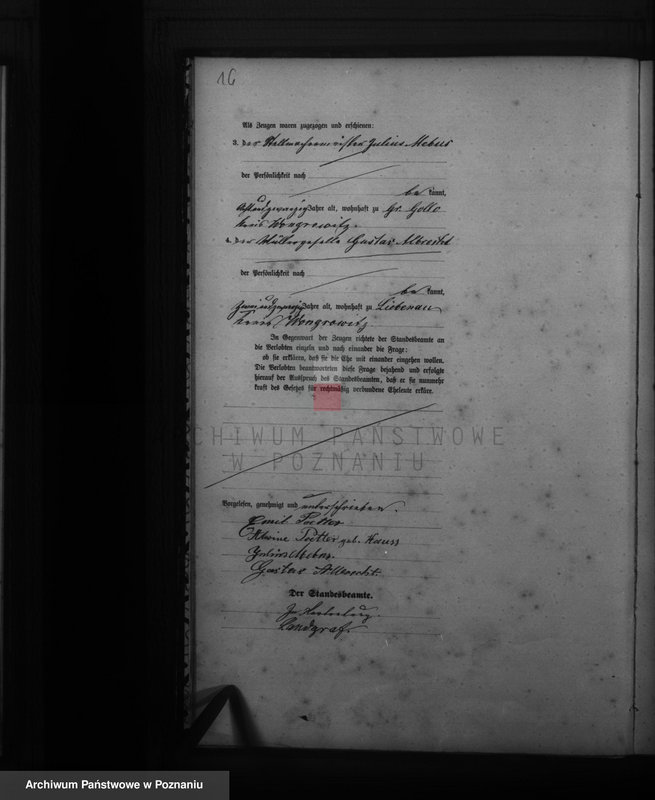 16
Als Zeugen waren zugezogen und erschienen:
3. der Stellmachermeister Julius Mebus
der Persönlichkeit nach
be kannt,
achtundzwanzig Jahre alt, wohnhaft zu Gr. Gollo
Kreis Wongrowitz.
4. der Müllergeselle Gustav Albrecht
der Persönlichkeit nach
be kannt,
zweiundzwanzig Jahre alt, wohnhaft zu Liebenau
Kreis Wongrowitz
In Gegenwart der Zeugen richtete der Standesbeamte an
die Verlobten einzeln und nach einander die Frage:
ob sie erklären, daß sie die Ehe mit einander eingehen wollen.
Die Verlobten beantworteten diese Frage bejahend und erfolgte
hierauf der Ausspruch des Standesbeamten, daß er sie nunmehr
kraft des Gesetzes für rechtmäßig verbundene Eheleute erkläre.
ARCHIWUM PAŃSTWOWE
W POZNANIU
Vorgelesen, genehmigt und unterschrieben.
Emil
geb.
Julius Mebus.
Gustav Albrecht.
Der Standesbeamte.
Landgraf.
Archiwum Państwowe w Poznaniu